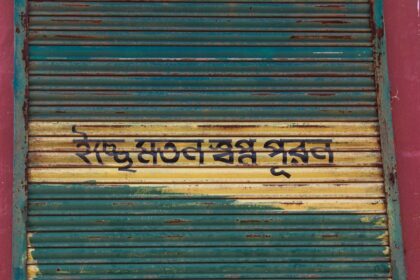 ইচ্ছেমতন স্বপ্ন পূরন